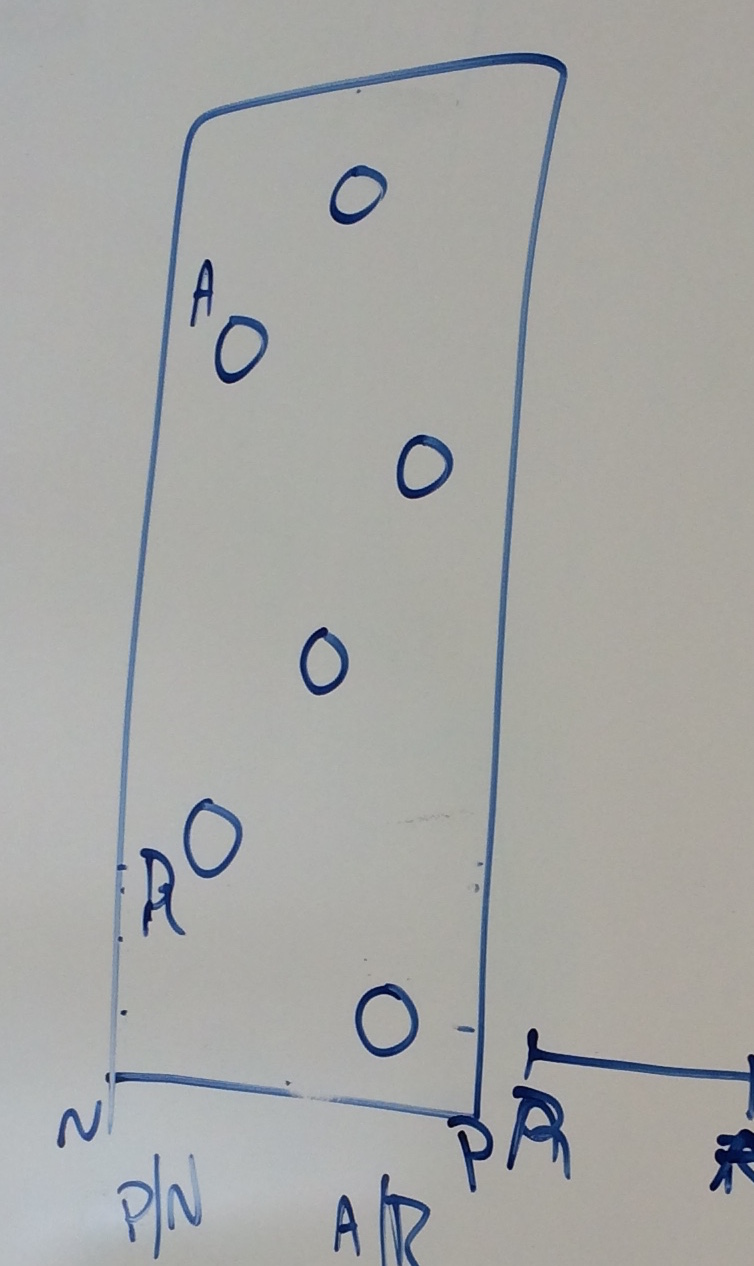 A
R
N
P
R
P/N
A/R